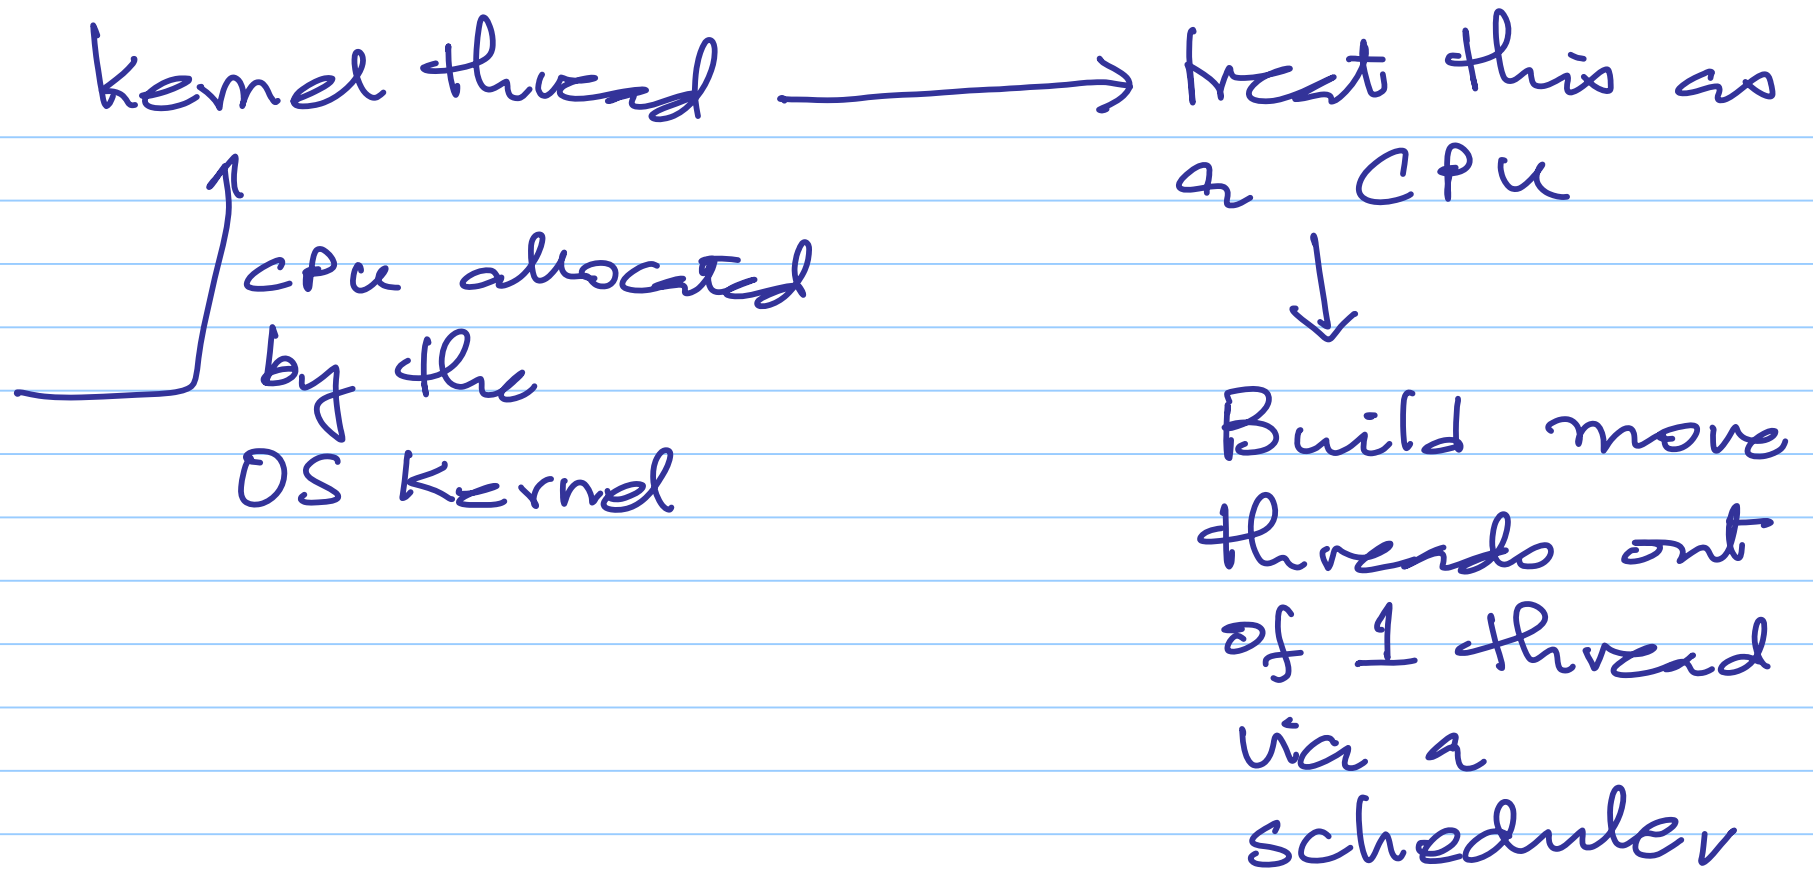 Kernel thread → treat this as
a CPU
↓
CPU allocated
by the
OS Kernel
Build more
threads out
of 1 thread
via a
scheduler